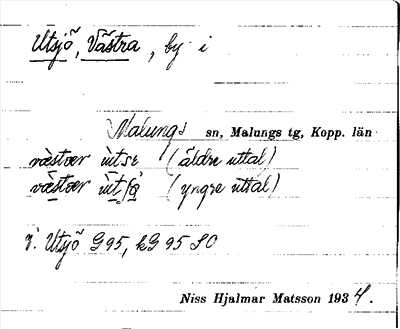 Utsjö, Västra, by i
Malungs sn, Malungs tg, Kopp. län
væstær ùtsє (äldre uttal)
væstær ùtʃö̀ (yngre uttal)
V. Utsjö G95, kG 95 SO
Niss Hjalmar Matsson 1934.